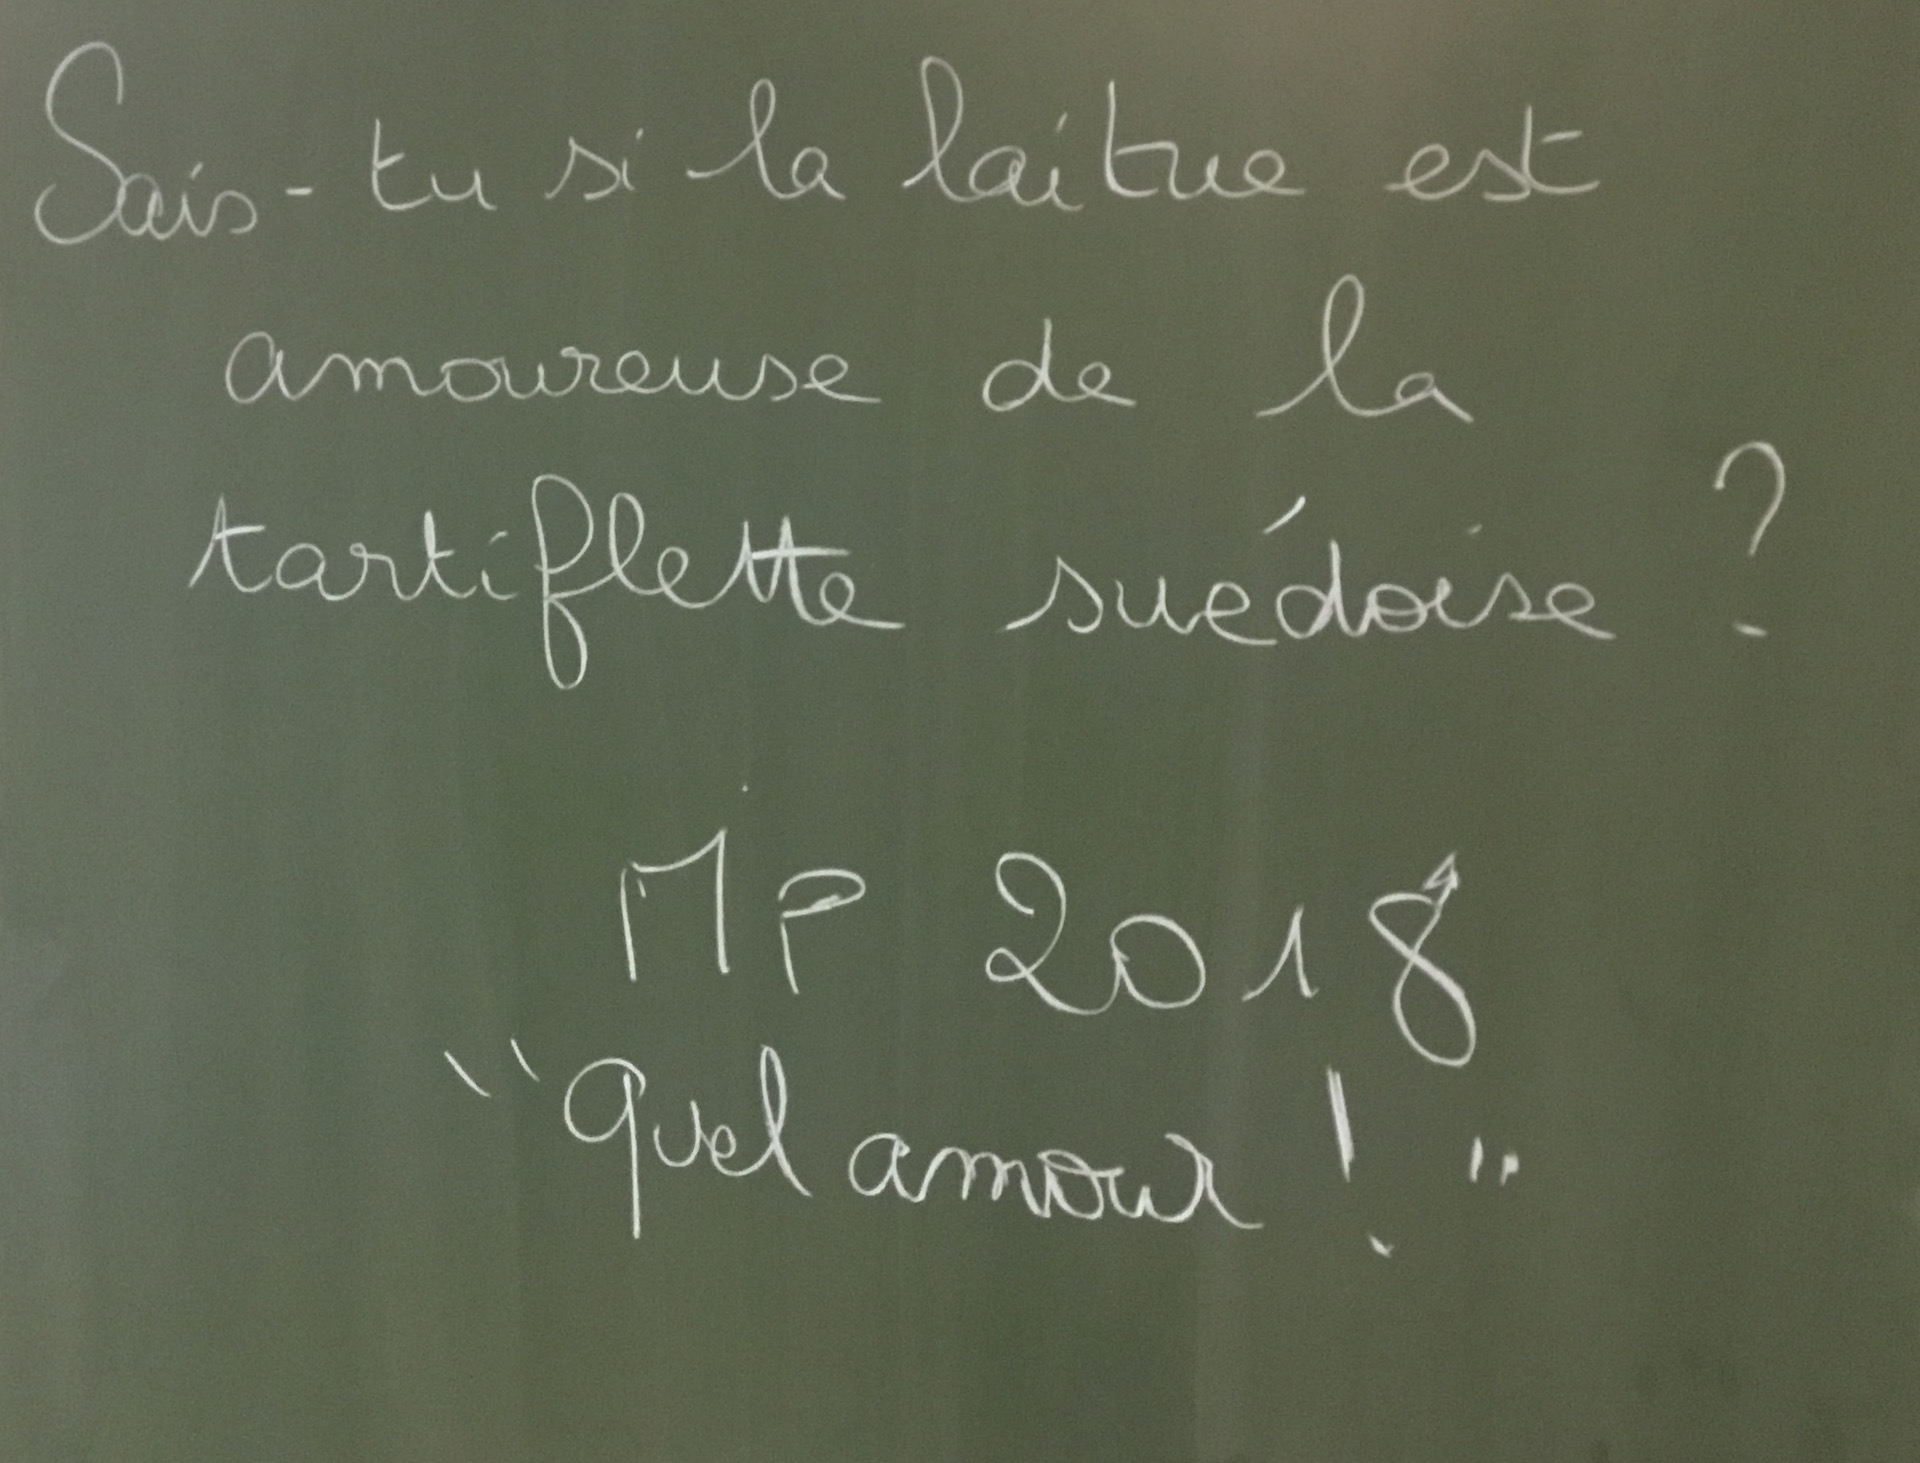 Sais-tu si la laitue est
amoureuse de la
tartiflette suédoise ?
MP 2018
"Quel amour ! "